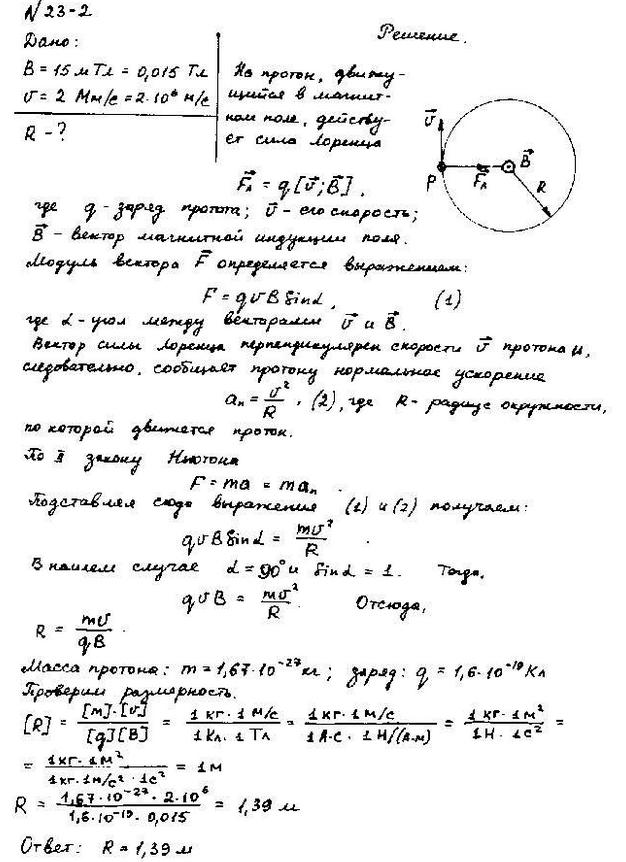 N 23-2
Дано:
Решение.
B = 15 мТл = 0,015 Тл
v = 2 Мм/с = 2·10⁶ м/с
R - ?
На протон, движу-
щийся в магнит-
ном поле, действу-
ет сила Лоренца
v⃗
P
F⃗л
B⃗
R
F⃗л = q[v⃗;B⃗],
где q - заряд протона; v⃗ - его скорость;
B⃗ - вектор магнитной индукции поля.
Модуль вектора F⃗ определяется выражением:
F = qvB sinα, (1)
где α - угол между векторами v⃗ и B⃗.
Вектор силы Лоренца перпендикулярен скорости v⃗ протона и,
следовательно, сообщает протону нормальное ускорение
aₙ = v²/R, (2), где R - радиус окружности,
по которой движется протон.
По II закону Ньютона
F = ma = maₙ.
Подставляя сюда выражения (1) и (2) получаем:
qvB sinα = mv²/R.
В нашем случае α = 90° и sinα = 1. Тогда,
qvB = mv²/R. Отсюда,
R = mv/qB.
Масса протона: m = 1,67·10⁻²⁷ кг; заряд: q = 1,6·10⁻¹⁹ Кл
Проверим размерность.
[R] = [m]·[v]/[q][B] = 1 кг·1 м/с / 1 Кл·1 Тл = 1 кг·1 м/с / 1 А·с·1 Н/(А·м) = 1 кг·1 м² / 1 Н·1 с² =
= 1 кг·1 м² / 1 кг·1 м/с²·1 с² = 1 м
R = 1,67·10⁻²⁷·2·10⁶ / 1,6·10⁻¹⁹·0,015 = 1,39 м
Ответ: R = 1,39 м